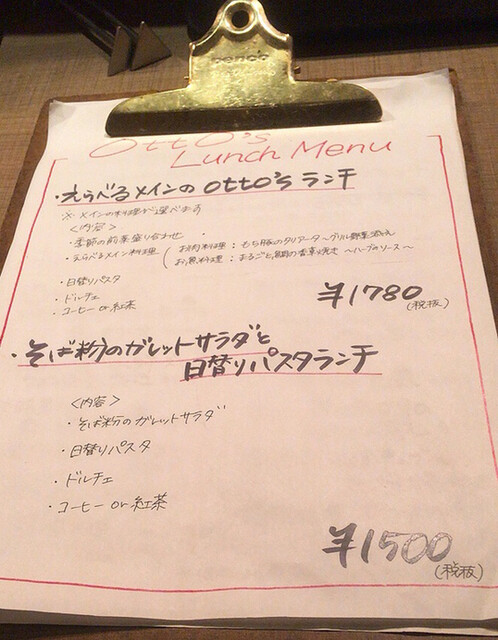 penco
OTTO's
Lunch Menu
・えらべるメインの otto's ランチ
※ メインの料理が選べます
<内容>
・季節の前菜盛り合わせ
・えらべるメイン料理 ( お肉料理：もち豚のタリアータ〜グリル野菜添え
お魚料理：まるごと鯛の香草焼き 〜ハーブのソース〜
・日替りパスタ
・ドルチェ
・コーヒー or 紅茶
¥1780 (税抜)
・そば粉のガレットサラダと
日替りパスタランチ
<内容>
・そば粉のガレットサラダ
・日替りパスタ
・ドルチェ
・コーヒー or 紅茶
¥1500
(税抜)